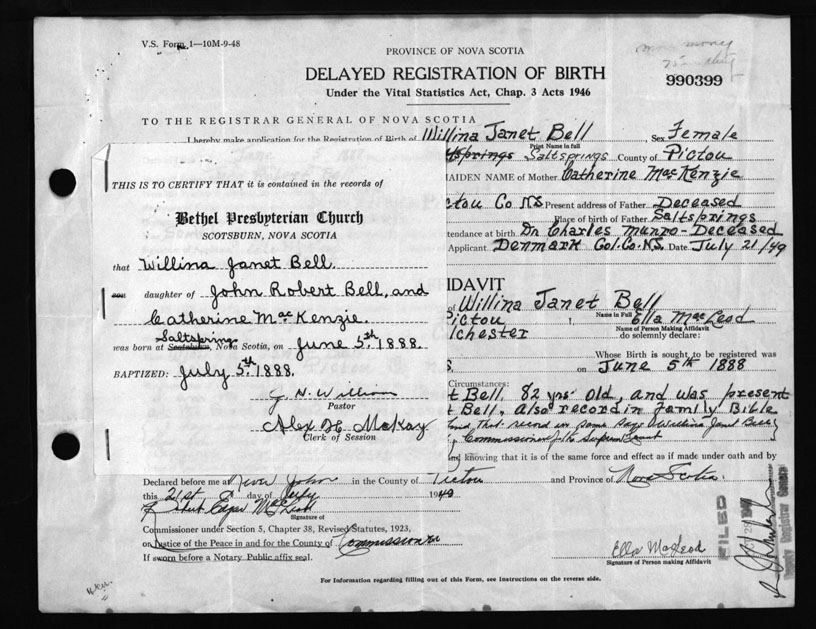 V.S. Form 1—10M-9-48
PROVINCE OF NOVA SCOTIA
DELAYED REGISTRATION OF BIRTH
990399
Under the Vital Statistics Act, Chap. 3 Acts 1946
TO THE REGISTRAR GENERAL OF NOVA SCOTIA
I hereby make application for the Registration of Birth of Willina Janet Bell Sex Female
Print Name in full
ltsprings Saltsprings County of Pictou
MAIDEN NAME of Mother Catherine MacKenzie
ctou Co N.S. Present address of Father Deceased
Place of birth of Father Saltsprings
tendance at birth Dr Charles Munro - Deceased
Applicant Denmark Col. Co. N.S. Date July 21/49
THIS IS TO CERTIFY THAT it is contained in the records of
Bethel Presbyterian Church
SCOTSBURN, NOVA SCOTIA
that Willina Janet Bell.
son daughter of John Robert Bell, and
Catherine MacKenzie.
Saltspring
was born at Scotsburn, Nova Scotia, on June 5th 1888.
BAPTIZED: July 5th 1888.
J. N. William
Pastor
Alex H. McKay
Clerk of Session
IDAVIT
of Willina Janet Bell
Name in Full
Pictou I, Ella MacLeod
Name of Person Making Affidavit
lchester do solemnly declare:
Whose Birth is sought to be registered was
on June 5th 1888
Circumstances:
t Bell. 82 yrs old, and was present
t Bell. Also record in family Bible
and that record in same says Willina Janet Bell
Commissioner of the Supreme Court
nd knowing that it is of the same force and effect as if made under oath and by
Declared before me at River John in the County of Pictou and Province of Nova Scotia
this 21st day of July 1949
Robert Edgar McLeod
Signature of
Commissioner under Section 5, Chapter 38, Revised Statutes, 1923,
or Justice of the Peace in and for the County of Commissioner
If sworn before a Notary Public affix seal.
Ella MacLeod
Signature of Person making Affidavit
FILED
Deputy Registrar General
For Information regarding filling out of this Form, see Instructions on the reverse side.